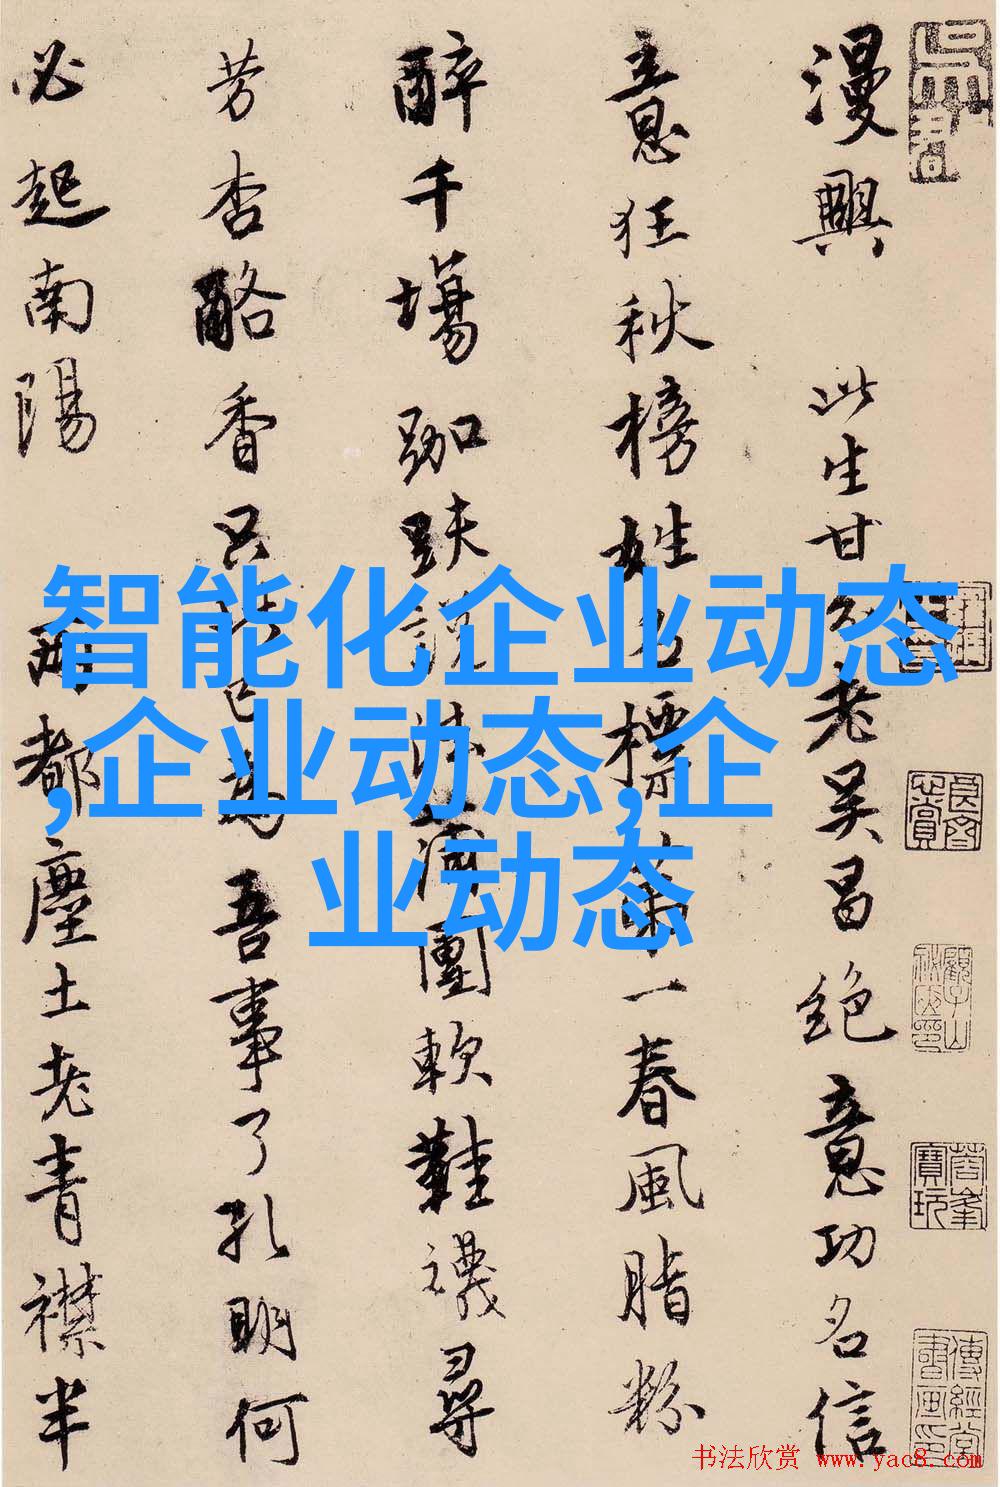 漫興 此生甘分老吴昌絶意功名信
意狂秋榜姓名標第一春風脂粉
醉千場跏趺説法蒲團軟鞋襪尋
芳杏酪香只此已為吾事了孔明何
必起南陽 兩都塵土老青襟半
智能化企业动态
,企业动态,企
业动态
书法欣赏 www.yac8.com